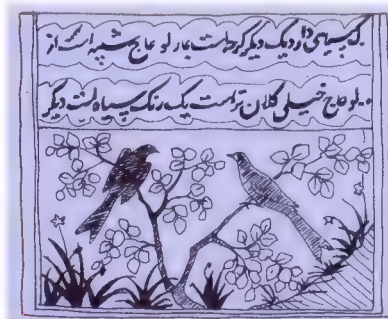 سیاهی دارد یک دیگر کرجه است بمار لو عاج شبیه است از
لو عاج خیلی کلان تر است یک رنگ سیاه است دیگر